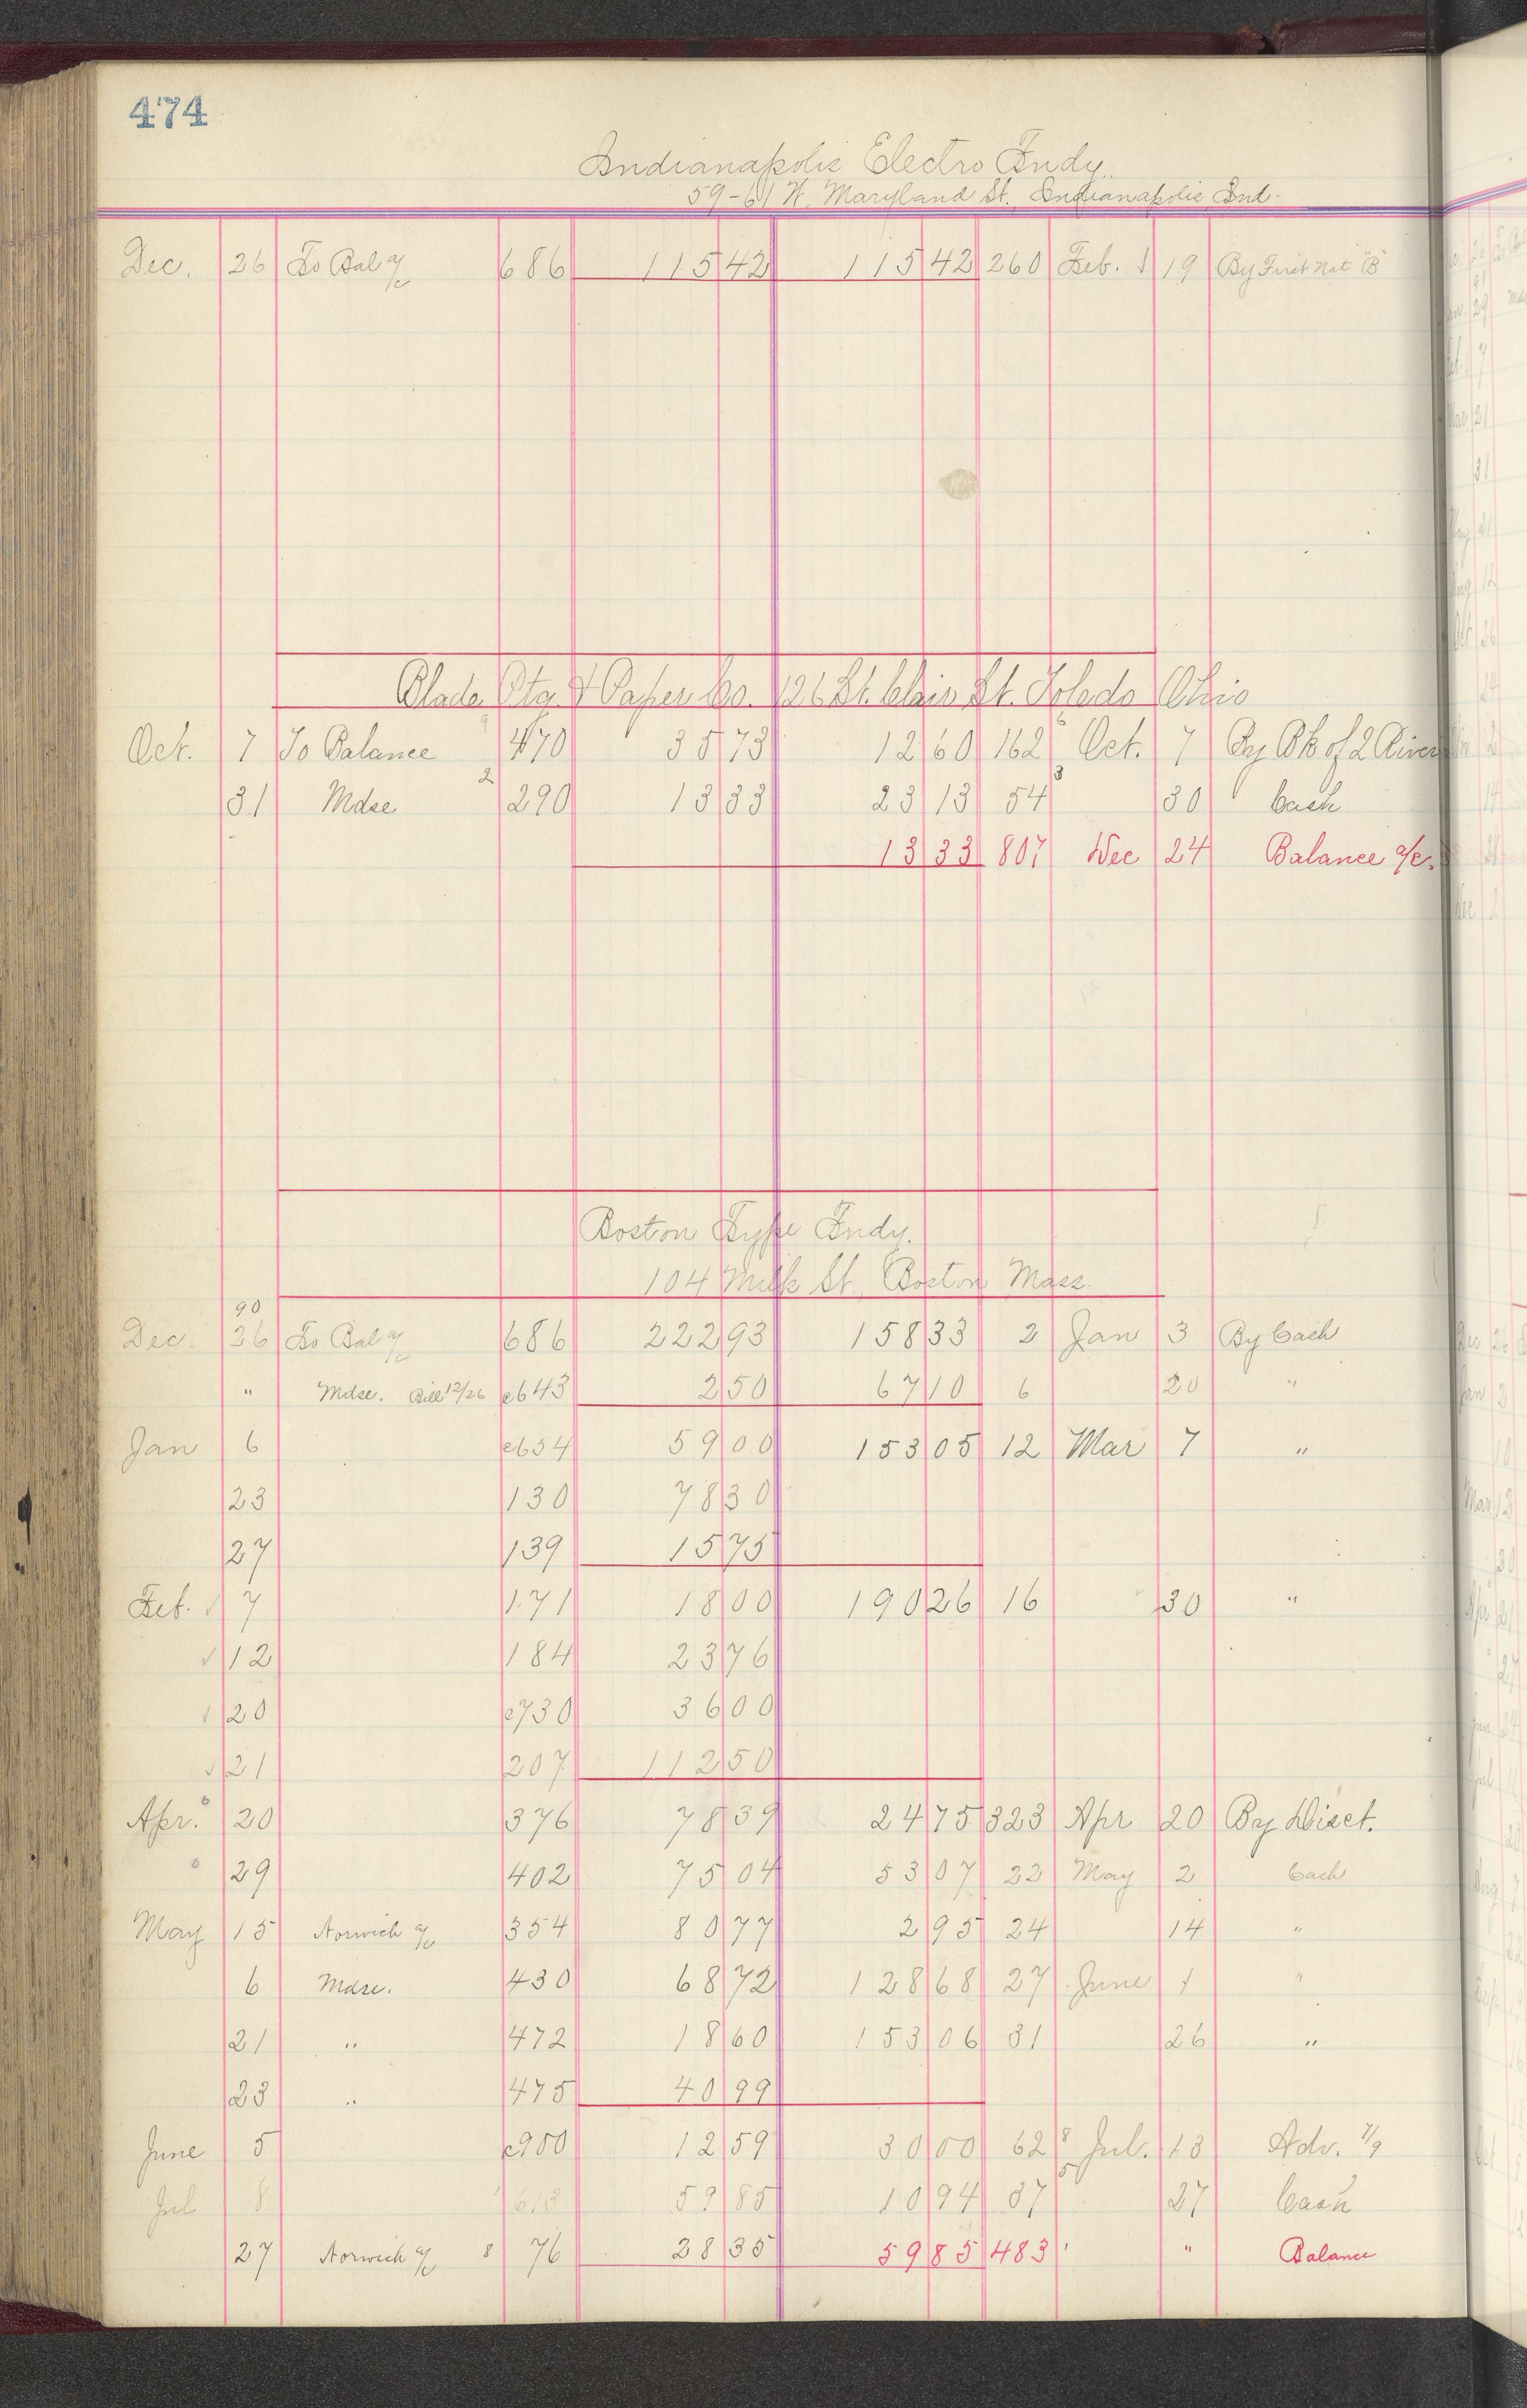 474
Indianapolis Electro Fndy.
59-61 W. Maryland St., Indianapolis Ind.
Dec. 26 To Bal a/c 686 115 42 115 42 260 Feb. 19 By First Nat "B"
Blade Ptg & Paper Co. 126 St. Clair St. Toledo Ohio
Oct. 7 To Balance 470 35 73 12 60 162 Oct. 7 By Bk of 2 Rivers
31 Mdse 2 290 13 33 23 13 54 3 30 Cash
13 33 807 Dec 24 Balance a/c.
Boston Type Fndy.
104 Milk St. Boston Mass.
90
Dec. 26 To Bal a/c 686 222 93 158 33 2 Jan 3 By Cash
" Mdse. Bill 12/26 c643 2 50 67 10 6 20 "
Jan 6 c654 59 00 153 05 12 Mar 7 "
23 130 78 30
27 139 15 75
Feb. 7 171 18 00 190 26 16 30 "
12 184 23 76
20 c730 36 00
21 207 112 50
Apr. 20 376 78 39 24 75 323 Apr 20 By Disct.
29 402 75 04 53 07 22 May 2 Cash
May 15 Norwich a/c 354 80 77 2 95 24 14 "
6 Mdse. 430 68 72 128 68 27 June 1 "
21 " 472 18 60 153 06 31 26 "
23 " 475 40 99
June 5 c950 12 59 30 00 62 8 Jul. 13 Adv. 7/9
Jul 8 613 59 85 10 94 37 5 27 Cash
27 Norwich a/c 8 76 28 35 59 85 483 " Balance